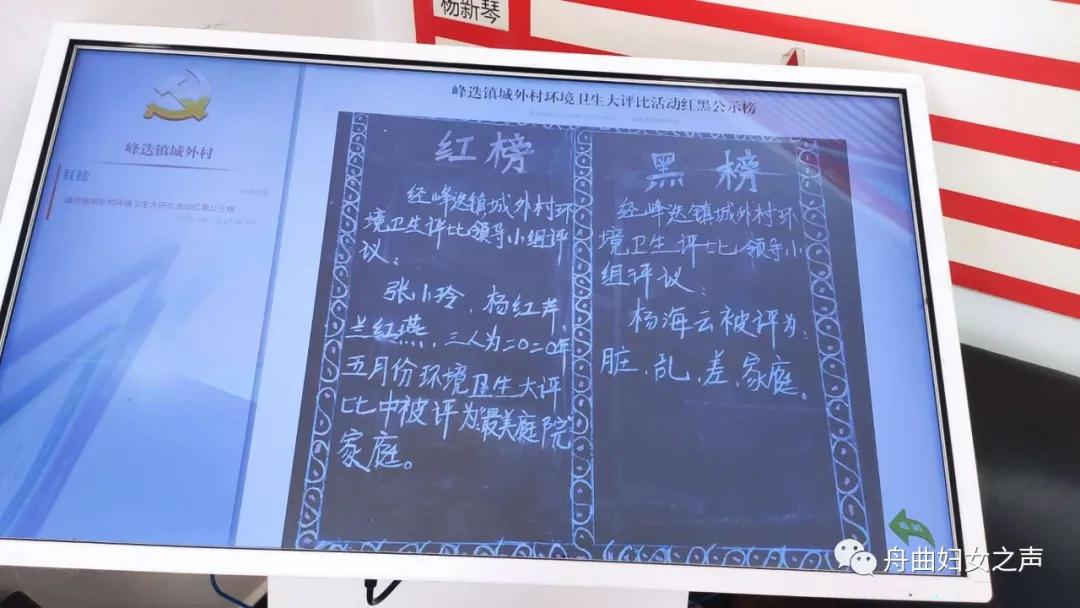 杨新琴
峰迭镇城外村环境卫生大评比活动红黑公示榜
峰迭镇城外村
红榜
峰迭镇城外村环境卫生大评比活动红黑公示榜
红榜
经峰迭镇城外村环
境卫生评比领导小组评
议:
张小玲、杨红芹、
兰红燕,三人为二〇二〇年
五月份环境卫生大评
比中被评为“最美庭院”
家庭。
黑榜
经峰迭镇城外村环
境卫生评比领导小
组评议:
杨海云被评为:
脏、乱、差、家庭。
返回
舟曲妇女之声